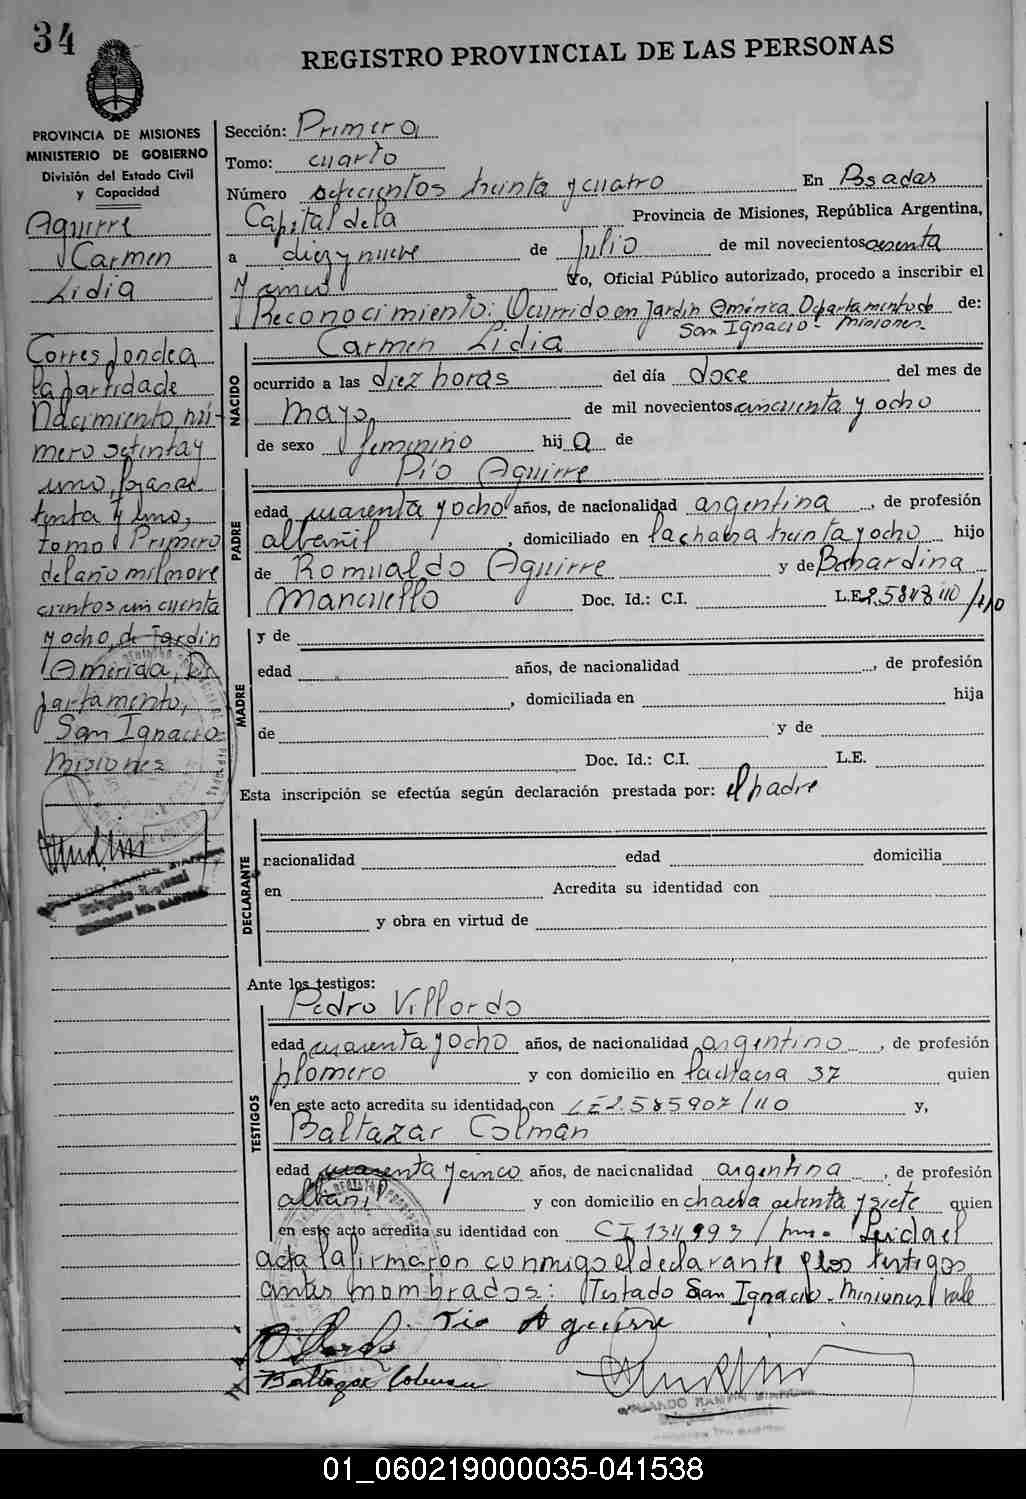 34
REGISTRO PROVINCIAL DE LAS PERSONAS
PROVINCIA DE MISIONES
MINISTERIO DE GOBIERNO
División del Estado Civil
y Capacidad
Aguirre
Carmen
Lidia
Corresponde a
la partida de
Nacimiento nú-
mero setenta y
uno, foja se
tenta y uno,
tomo Primero
del año mil nove
cientos cincuenta
y ocho, de Jardín
América, De
partamento,
San Ignacio
Misiones
Sección: Primera
Tomo: cuarto
Número setecientos treinta y cuatro En Posadas
Capital de la Provincia de Misiones, República Argentina,
a diez y nueve de Julio de mil novecientos sesenta
y cinco Yo, Oficial Público autorizado, procedo a inscribir el
Reconocimiento: Ocurrido en Jardín América Departamento de de:
San Ignacio - Misiones.
Carmen Lidia
NACIDO
ocurrido a las diez horas del día doce del mes de
mayo de mil novecientos cincuenta y ocho
de sexo femenino hija de
PADRE
Pío Aguirre
edad cuarenta y ocho años, de nacionalidad argentina, de profesión
albañil, domiciliado en la chacra treinta y ocho hijo
de Romualdo Aguirre y de Bernardina
Doc. Id.: C.I. L.E.
MADRE
y de
edad años, de nacionalidad, de profesión
, domiciliada en hija
de y de
Doc. Id.: C.I. L.E.
Esta inscripción se efectúa según declaración prestada por: el padre
DECLARANTE
nacionalidad edad domicilia
en Acredita su identidad con
y obra en virtud de
Ante los testigos:
TESTIGOS
Pedro Villordo
edad cuarenta y ocho años, de nacionalidad argentino, de profesión
plomero y con domicilio en la chacra 37 quien
en este acto acredita su identidad con LE 2.585907/110 y,
Baltazar Colman
edad cuarenta y cinco años, de nacionalidad argentina, de profesión
albañil y con domicilio en chacra setenta y siete quien
en este acto acredita su identidad con CI 134993 / Leída el
acta la firmaron conmigo el declarante y los testigos
antes nombrados: Testado San Ignacio - Misiones vale
Pio Aguirre
Baltazar Colman
01_060219000035-041538